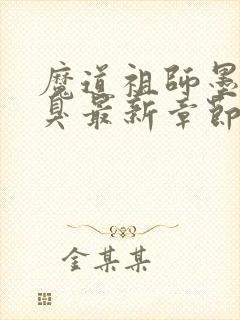 魔道祖师墨
臭最新章節
金某某